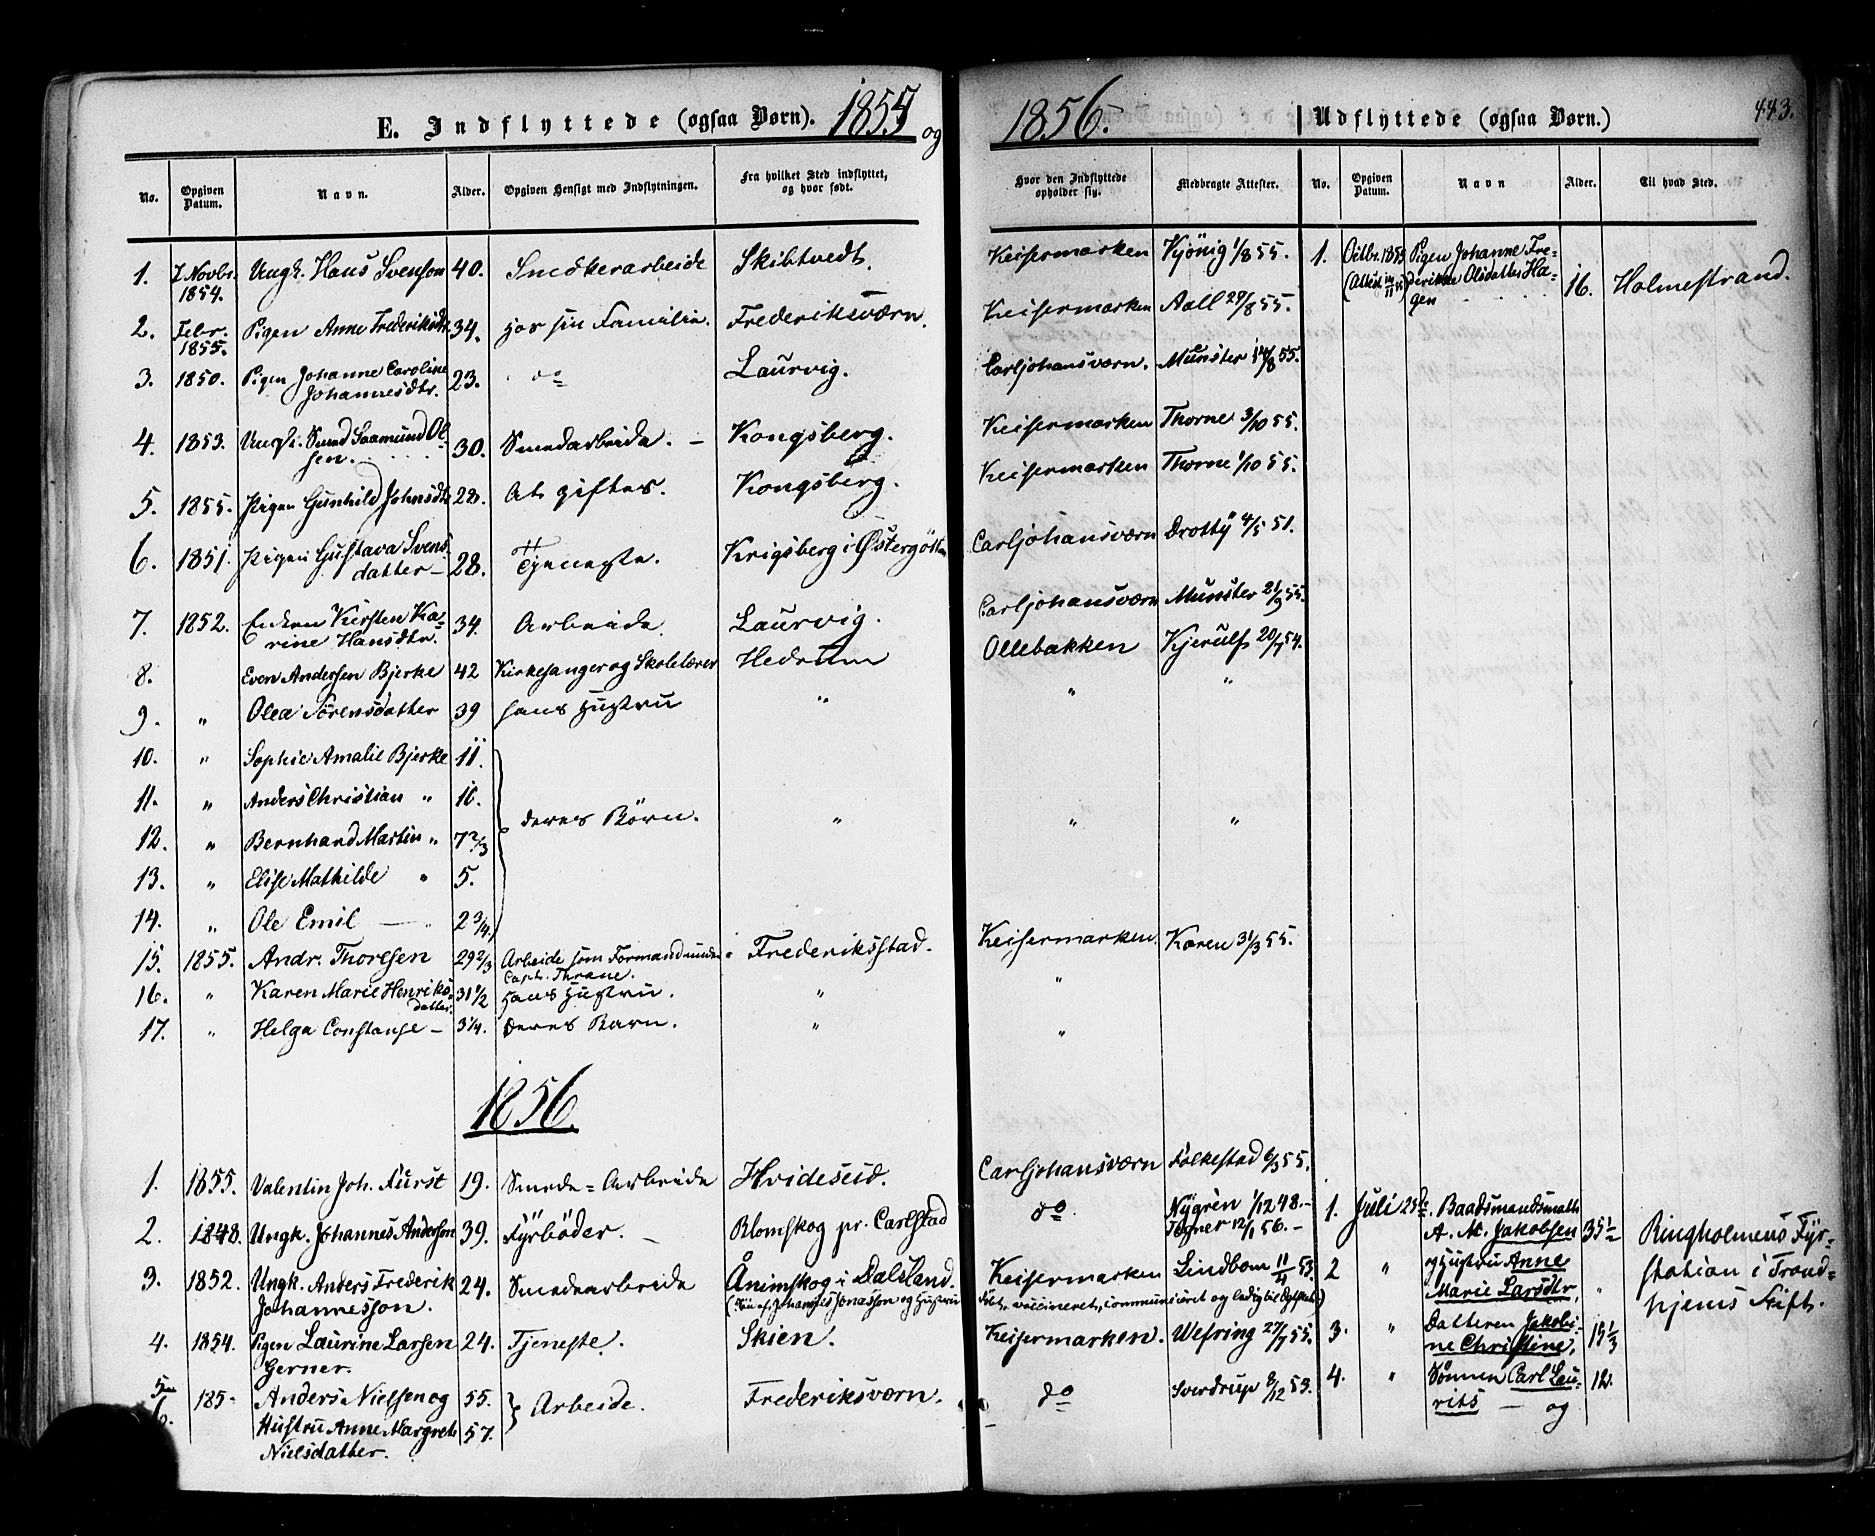 E. Indflyttede (ogsaa Børn). 1855 og
1856. Udflyttede (ogsaa Børn.) 443.
No. | Opgiven Datum. | Navn. | Alder. | Opgiven Hensigt med Indflytningen. | Fra hvilket Sted indflyttet, og hvor født. | Hvor den Indflyttede opholder sig. | Medbragte Attester.
1. | Novbr. 1854. | Ungk. Hans Svenson | 40. | Snedkerarbeide | Skibtvedt. | Keisermarken | 1/8 55.
2. | Febr. 1855. | Pigen Anne Frederiksdtr. | 34. | hos sin Familie. | Frederiksværn. | Keisermarken | Aall 29/8 55.
3. | 1850. | Pigen Johanne Caroline Johannesdtr. | 23. | do | Laurvig. | Carljohansværn. | Munster 14/8 55.
4. | 1853. | Ungk. Smed Saamund Olsen. | 30. | Smedarbeide. – | Kongsberg. | Keisermarken | Thorne 3/10 55.
5. | 1855. | Pigen Gunhild Johnsdtr | 28. | At giftes. | Kongsberg. | Keisermarken | Thorne 1/10 55.
6. | 1851. | Pigen Gustava Svensdatter – | 28. | Tjeneste. | Krigsberg i Østergøtl. | Carljohansværn | Drotty 4/5 51.
7. | 1852. | Enken Kirsten Karine Hansdtr. | 34. | Arbeide. | Laurvig. | Carljohansværn | Munster 21/9 55.
8. | Even Andersen Bjerke | 42 | Kirkesanger og Skolelærer | Hedrum | Ollebakken | Kjerulf 20/7 54.
9. | " | Olea Sørensdatter | 39 | hans Hustru | " | " | "
10. | " | Sophie Amalie Bjerke | 11.
11. | " | Anders Christian " | 10.
12. | " | Bernhard Martin " | 7 2/3 | deres Børn. | " | " | "
13. | " | Elise Mathilde " | 5.
14. | " | Ole Emil – " | 2 3/4
15. | 1855. | Andr. Thoresen | 29 2/3 | Arbeide som Formand under Capt. Thrane. | Frederiksstad. | Keisermarken. | Koren 31/3 55.
16. | " | Karen Marie Henriksdatter | 31 1/2 | hans Hustru. | " | "
17. | " | Helga Constanse – | 3/4. | deres Barn. | " | "
1856.
1. | 1855. | Valentin Joh. Furst | 19. | Smede-Arbeide | Hvideseid. | Carljohansværn | Folkestad 6/3 55.
2. | 1848. | Ungk. Johannes Anderson | 39. | Fyrbøder. – | Blomskog pr. Carlstad | do | Nygrèn 1/12 48. – Tegner 12/1 56. –
3. | 1852. | Ungk. Anders Frederik Johannesson. | 24. | Smedearbeide | Ånimskog i Dalsland. (Søn af Johannes Jonasson og Hustru | Keisermarken | Lindbom 11/4 53.
Født, vaccineret, communiceret og ledig til Ægteskab)
4. | 1854. | Pigen Laurine Larsen Gerner. | 24. | Tjeneste. | Skien. | Keisermarken. | Wefring 27/7 55.
5 | 185- | Anders Nielsen og | 55. | Arbeide. | Frederiksværn. | do | Sverdrup 8/12 53.
6. | Hustru Anne Margrete Nielsdatter. | 57.
No. | Opgiven Datum. | Navn | Alder. | Til hvad Sted.
1. | Octbr. 1855 | Pigen Johanne Frederikke Olsdatter Hagen | 16. | Holmestrand.
1. | Juli 25de. | Baadsmandsmath A. M. Jakobsen | 35 1/2 | Ringholmens Fyrstation i Trondhjems Stift.
2 | " | og Hustru Anne Marie Larsdtr, | "
3. | " | Datteren Jakobine Christine, | 15 1/3
4. | " | Sønnen Carl Laurits – og | 12.